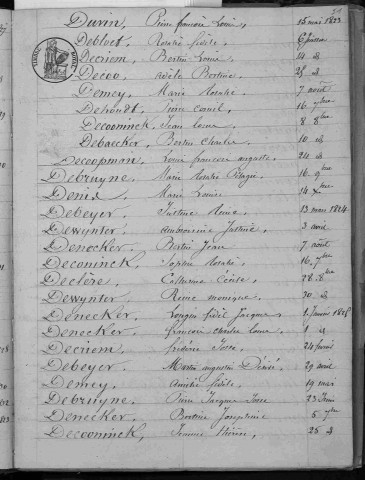 Durin, Pierre françois Louis 15 mai 1823
Debloet, Rosalie fidèle 6 juillet
Decriem, Bertin Louis 14 d
Decoo, Adèle Bertine 25 d
Demey, Marie Rosalie 7 août
Dehoudt, Pierre Corneil 16 7bre
Decooninck, Jean Louis 8 8bre
Debaecker, Bertin Charles 10 d
Decoopman, Louis francois auguste 24 d
Debruyne, Marie Rosalie Pélagie 16 9bre
Denis, Marie Louise 14 Xbre
Debeyer, Justine Reine 13 mars 1824
Dewynter, Ambroisine Justine 3 avril
Denecker, Bertin Jean 7 août
Deconinck, Sophie Rosalie 16 7bre
Declère, Catherine Cécile 28 8bre
Dewynter, Reine monique 30 d
Denecker, Longin fidèl Jacques 1 Janvier 1825
Denecker, francois Charles Louis 1 d
Decriem, frédéric Josse 24 février
Debeyer, Martin augustin Désiré 29 avril
Demey, Amélie fidèle 19 mai
Debruyne, Pierre Jacques Josse 23 Juin
Denecker, Bertine Josephine 5 7bre
Decooninck, 25 d